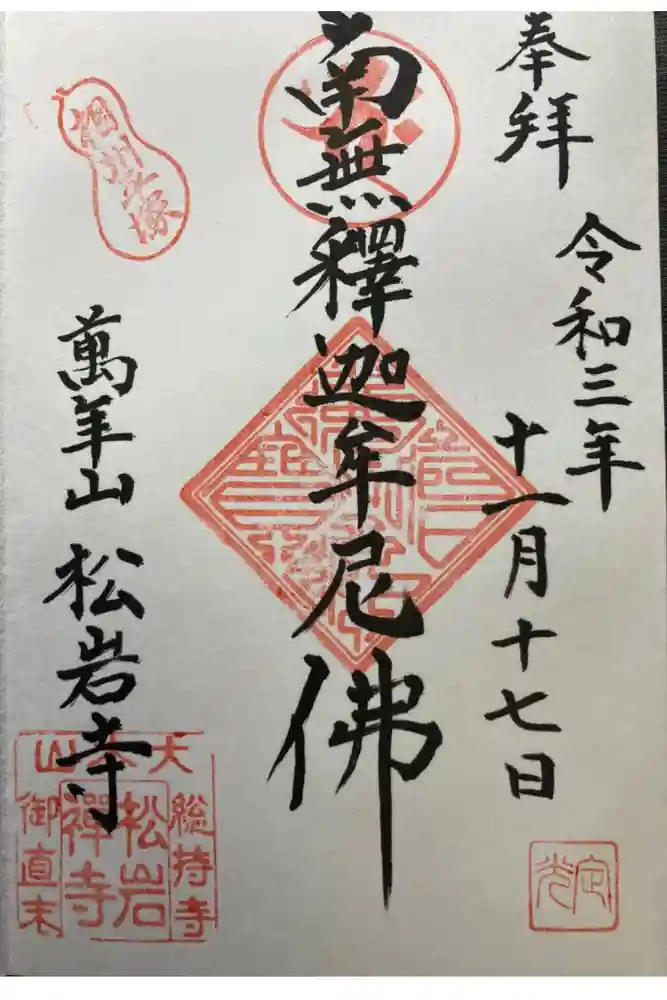 奉拝
令和三年
十一月十七日
南無釋迦牟尼佛
萬年山 松岩寺
大本山
総持寺
松岩
禅寺
御直末